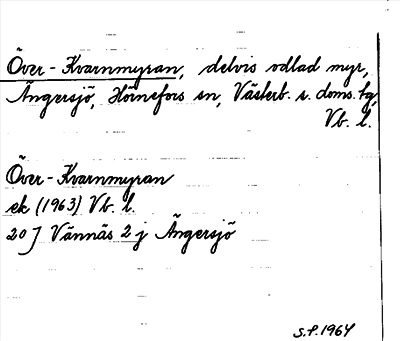 Över-Kvarnmyran, delvis odlad myr,
Ängersjö, Hörnefors sn, Västerb. s. doms. tg,
Vb. l.
Över-Kvarnmyran
ek (1963) Vb. l.
20 J Vännäs 2 j Ängersjö
S.P. 1964